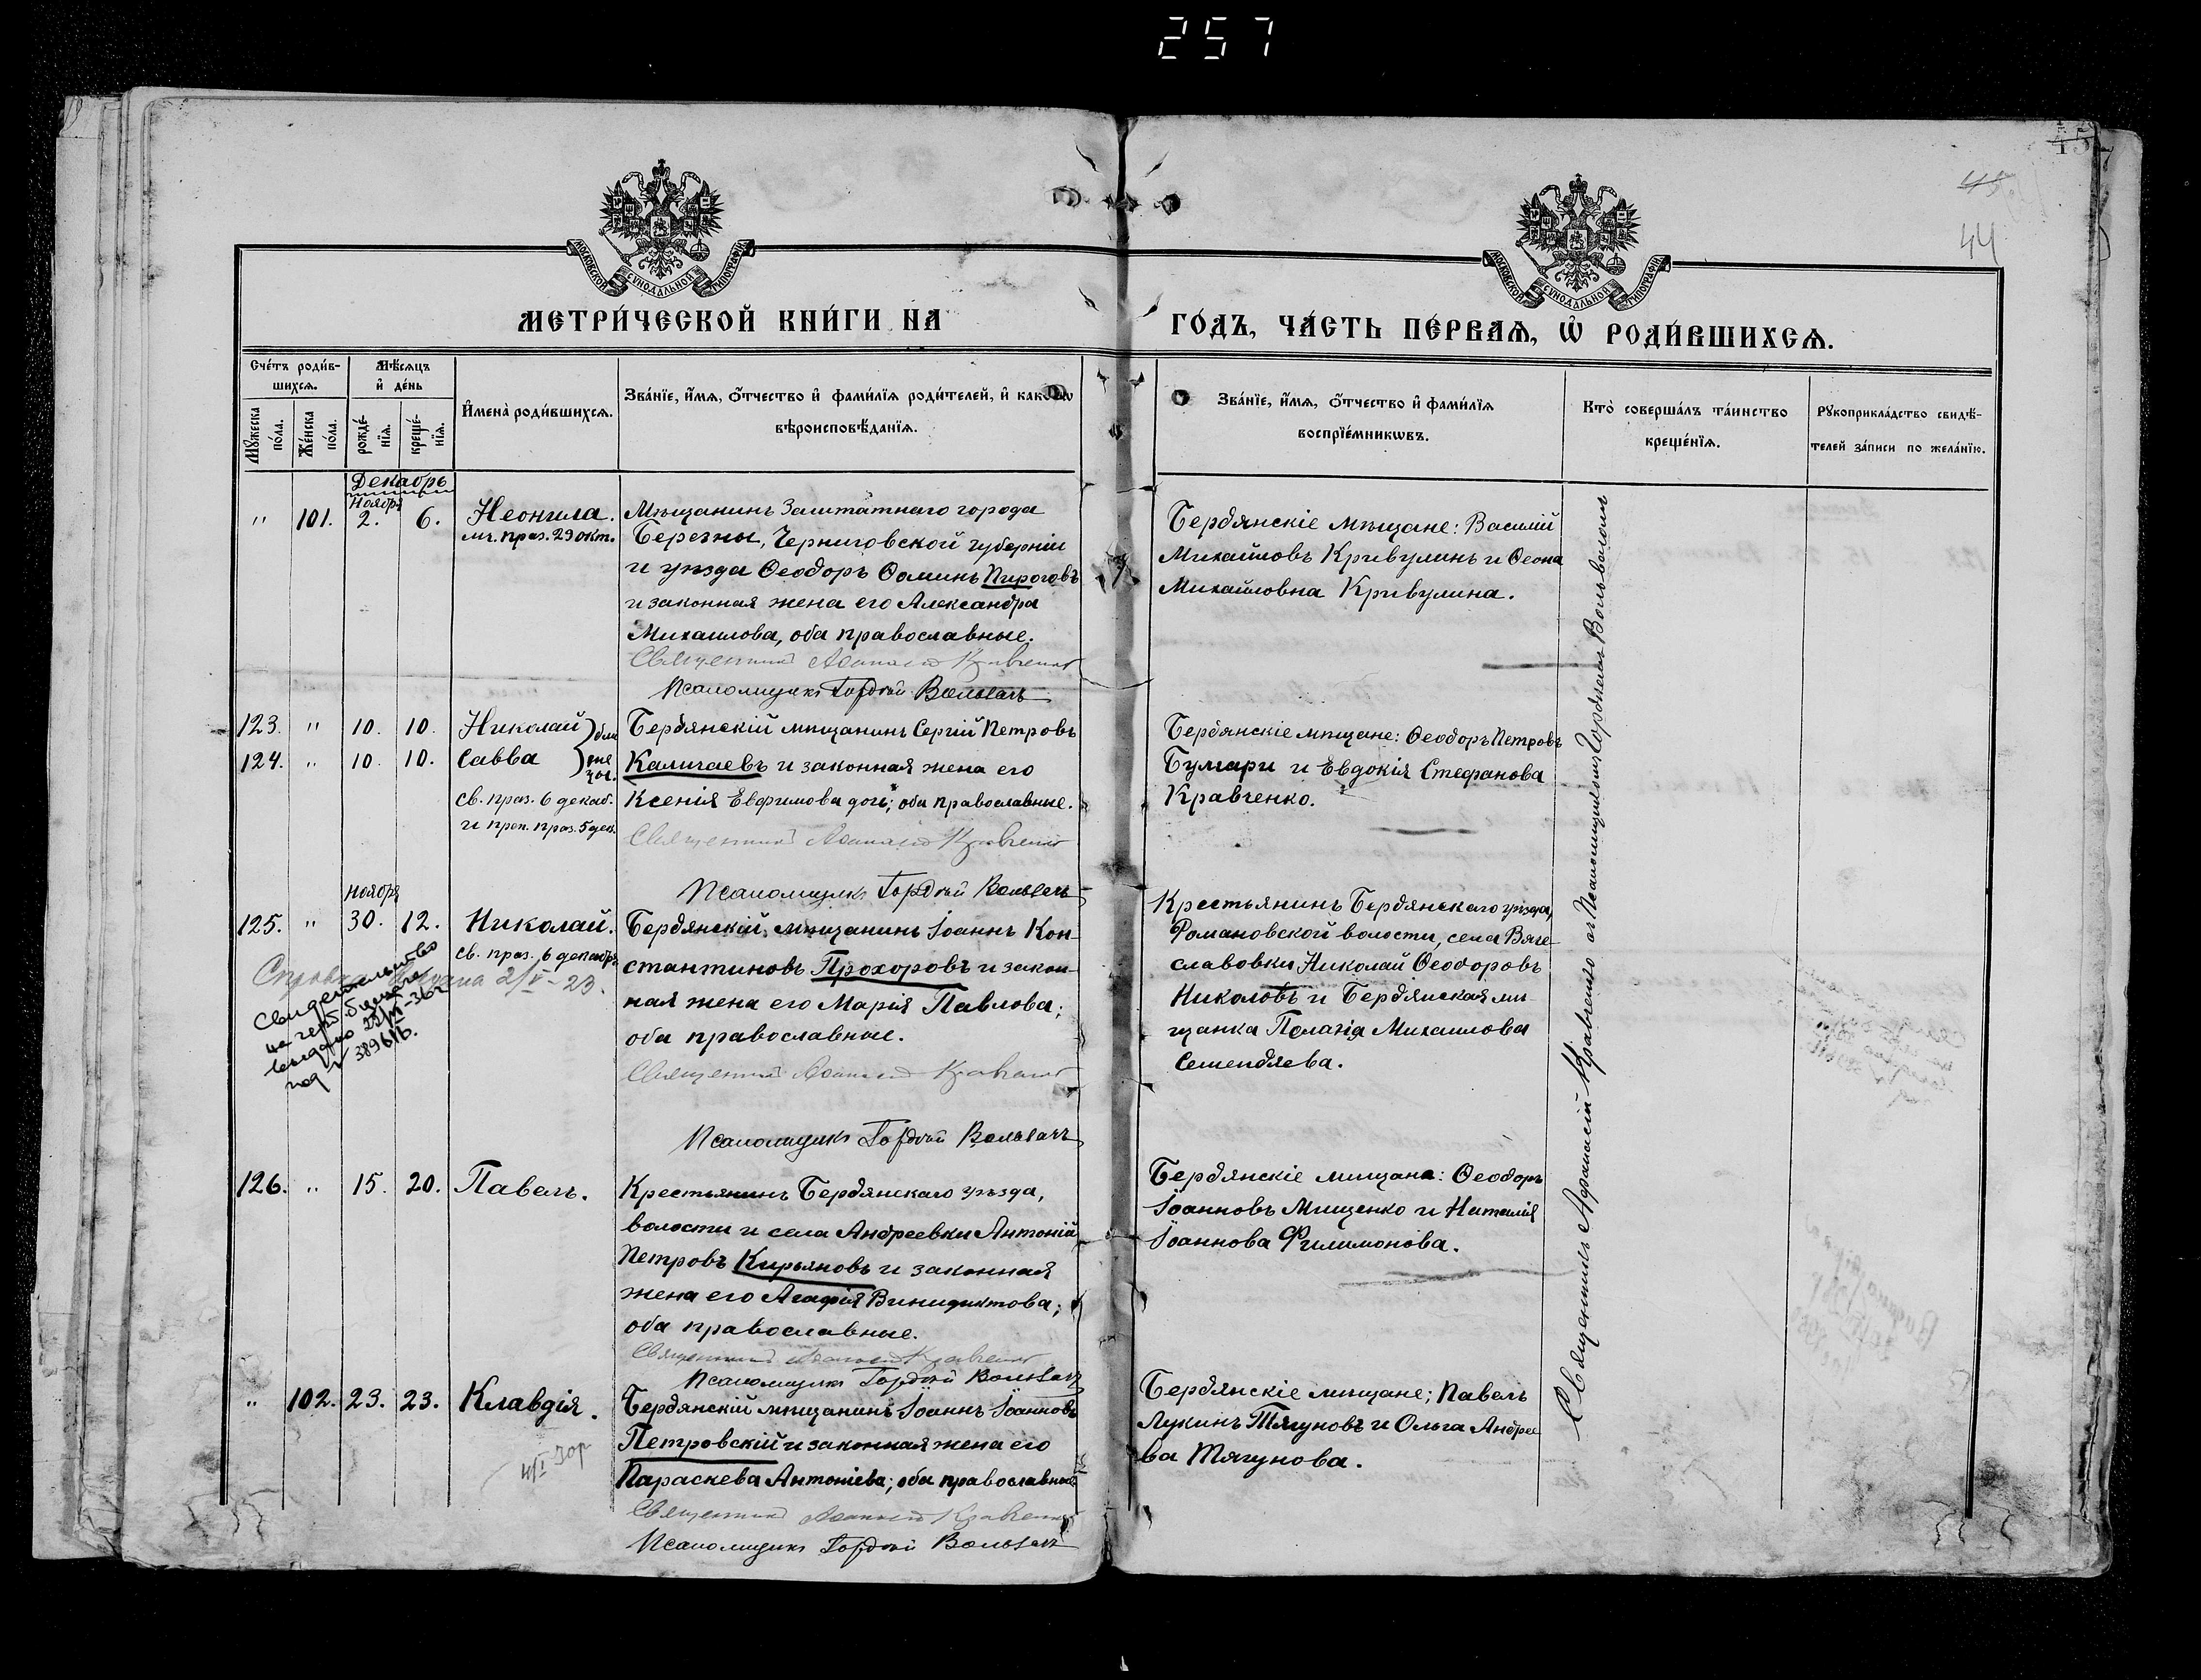 257
45
44
МОСКОВСКОЙ СѴНОДАЛЬНОЙ ТИПОГРАФІИ
МОСКОВСКОЙ СѴНОДАЛЬНОЙ ТИПОГРАФІИ
МЕТРИ́ЧЕСКОЙ КНИ́ГИ НА
ГО́ДЪ, ЧА́СТЬ ПЕ́РВАѦ, Ѡ҆ РОДИ́ВШИХСѦ.
Сче́тъ роди́в-
шихсѧ.
Мѣ́сѧцъ
и҆ де́нь
Мꙋ́жеска
по́ла.
Же́нска
по́ла.
рожде́-
нїѧ.
креще́-
нїѧ.
И҆мена̀ роди́вшихсѧ.
Зва́нїе, и҆́мѧ, ѻ҆́тчество и҆ фами́лїѧ роди́телей, и҆ как
вѣроисповѣ́данїѧ.
Зва́нїе, и҆́мѧ, ѻ҆́тчество и҆ фами́лїѧ
воспрїе́мникѡвъ.
Кто̀ соверша́лъ та́инство
креще́нїѧ.
Рꙋкоприкла́дство свидѣ́-
телей за́писи по жела́нїю.
Декабрь
Ноября
" 101. 2. 6. Неонила.
мч. праз. 29 окт.
Мѣщанинъ Заштатнаго города
Березны, Черниговской губерніи
и уѣзда Ѳеодоръ Ѳоминъ Пироговъ
и законная жена его Александра
Михаилова, оба православные.
Священникъ Аѳанасій Кравченко
Псаломщикъ Гордѣй Вольвачъ
Бердянскіе мѣщане: Василій
Михайловъ Кривулинъ и Ѳеона
Михайловна Кривулина.
123. " 10. 10. Николай
124. " 10. 10. Савва
бли
зне
цы.
св. праз. 6 декаб.
и преп. праз. 5 дек.
Бердянскій мѣщанинъ Сергій Петровъ
Каличаевъ и законная жена его
Ксенія Евфимова дочь; оба православные.
Священникъ Аѳанасій Кравченко
Псаломщикъ Гордѣй Вольвачъ
Бердянскіе мѣщане: Ѳеодоръ Петровъ
Булгари и Евдокія Стефанова
Кравченко.
ноября
125. " 30. 12. Николай.
св. праз. 6 декабря
Справка 2/V-23.
Свидетельство
выдано
под № 389616.
Бердянскій мѣщанинъ Іоаннъ Кон-
стантиновъ Прохоровъ и закон-
ная жена его Марія Павлова;
оба православные.
Священникъ Аѳанасій Кравченко
Псаломщикъ Гордѣй Вольвачъ
Крестьянинъ Бердянскаго уѣзда,
Романовской волости, села Вяче-
славовки Николай Ѳеодоровъ
Николовъ и Бердянская мѣ-
щанка Пелагія Михаилова
Семендяева.
126. " 15. 20. Павелъ.
Крестьянинъ Бердянскаго уѣзда,
волости и села Андреевки Антоній
Петровъ Кирьяновъ и законная
жена его Агафія Винидиктова;
оба православные.
Священникъ Аѳанасій Кравченко
Псаломщикъ Гордѣй Вольвачъ
Бердянскіе мѣщане: Ѳеодоръ
Іоанновъ Мищенко и Наталія
Іоаннова Филимонова.
" 102. 23. 23. Клавдія.
Бердянскій мѣщанинъ Іоаннъ Іоанновъ
Петровскій и законная жена его
Параскева Антоніева; оба православные
Священникъ Аѳанасій Кравченко
Псаломщикъ Гордѣй Вольвачъ
Бердянскіе мѣщане; Павелъ
Лукинъ Тягуновъ и Ольга Андрее
ва Тягунова.
Священникъ Аѳанасій Кравченко съ Псаломщикомъ Гордѣемъ Вольвачомъ